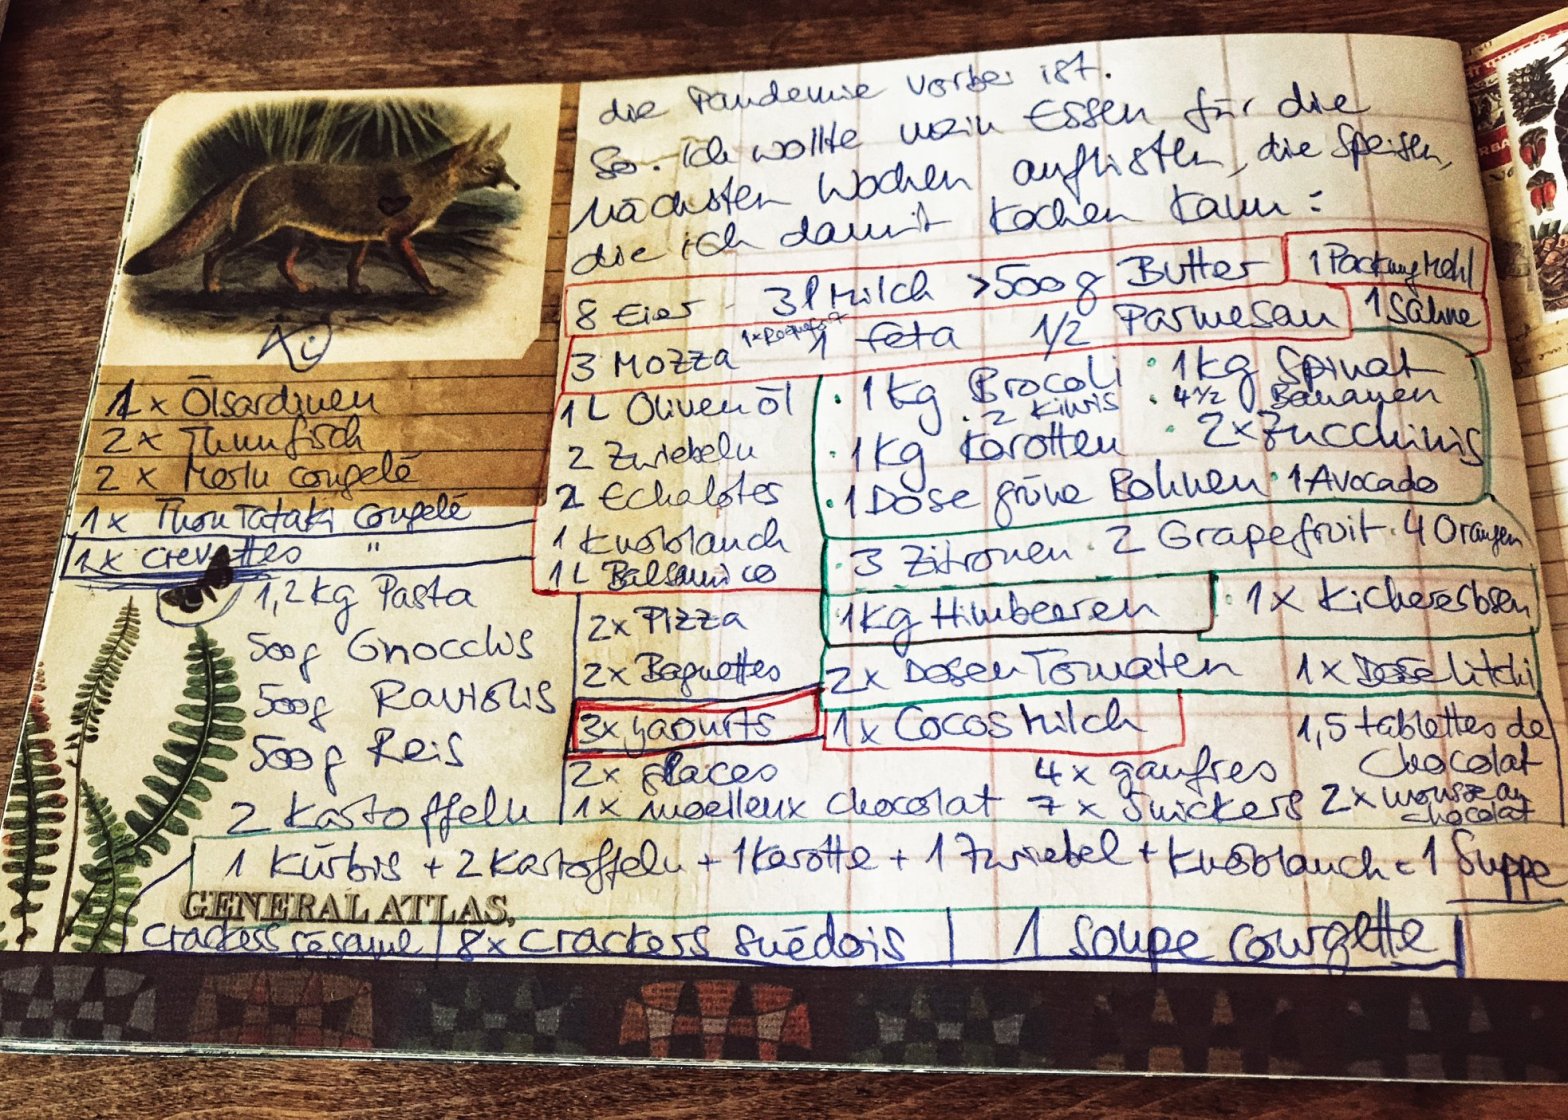 die Pandemie vorbei ist.
So. Ich wollte mein Essen für die
nächsten Wochen auflisten, die Speisen,
die ich damit kochen kann:
8 Eier - 3l Milch >500g Butter 1 Packung Mehl
3 Mozza 1x Roquefort 1 feta 1/2 Parmesan 1 Sahne
1L Olivenöl
2 Zwiebeln
2 Echalotes
1 Knoblauch
1L Balsamico
· 1kg Brocoli · 1kg Spinat
· 2 Kiwis · 4 1/2 Bananen
· 1kg Karotten · 2x Zucchinis
· 1 Dose grüne Bohnen · 1 Avocado
· 3 Zitronen · 2 Grapefruit · 4 Orangen
1kg Himbeeren · 1x Kichererbsen
2x Dosen Tomaten 1x Dose Litchi
1x Cocosmilch
1x Ölsardinen
2x Thunfisch
2x Merlu congelé
1x Thon Tataki congelé
1x crevettes "
1,2kg Pasta
500g Gnocchis
500g Raviolis
500g Reis
2 Kartoffeln
2x Pizza
2x Baguettes
3x yaourts
2x glaces 4x gaufres
1,5 tablettes de
chocolat
1x moelleux chocolat 7x Snickers 2x mousse au
chocolat
1 Kürbis + 2 Kartoffeln + 1 Karotte + 1 Zwiebel + Knoblauch = 1 Suppe
GENERAL ATLAS,
crackers sésame | 8x crackers suédois | 1 soupe courgette